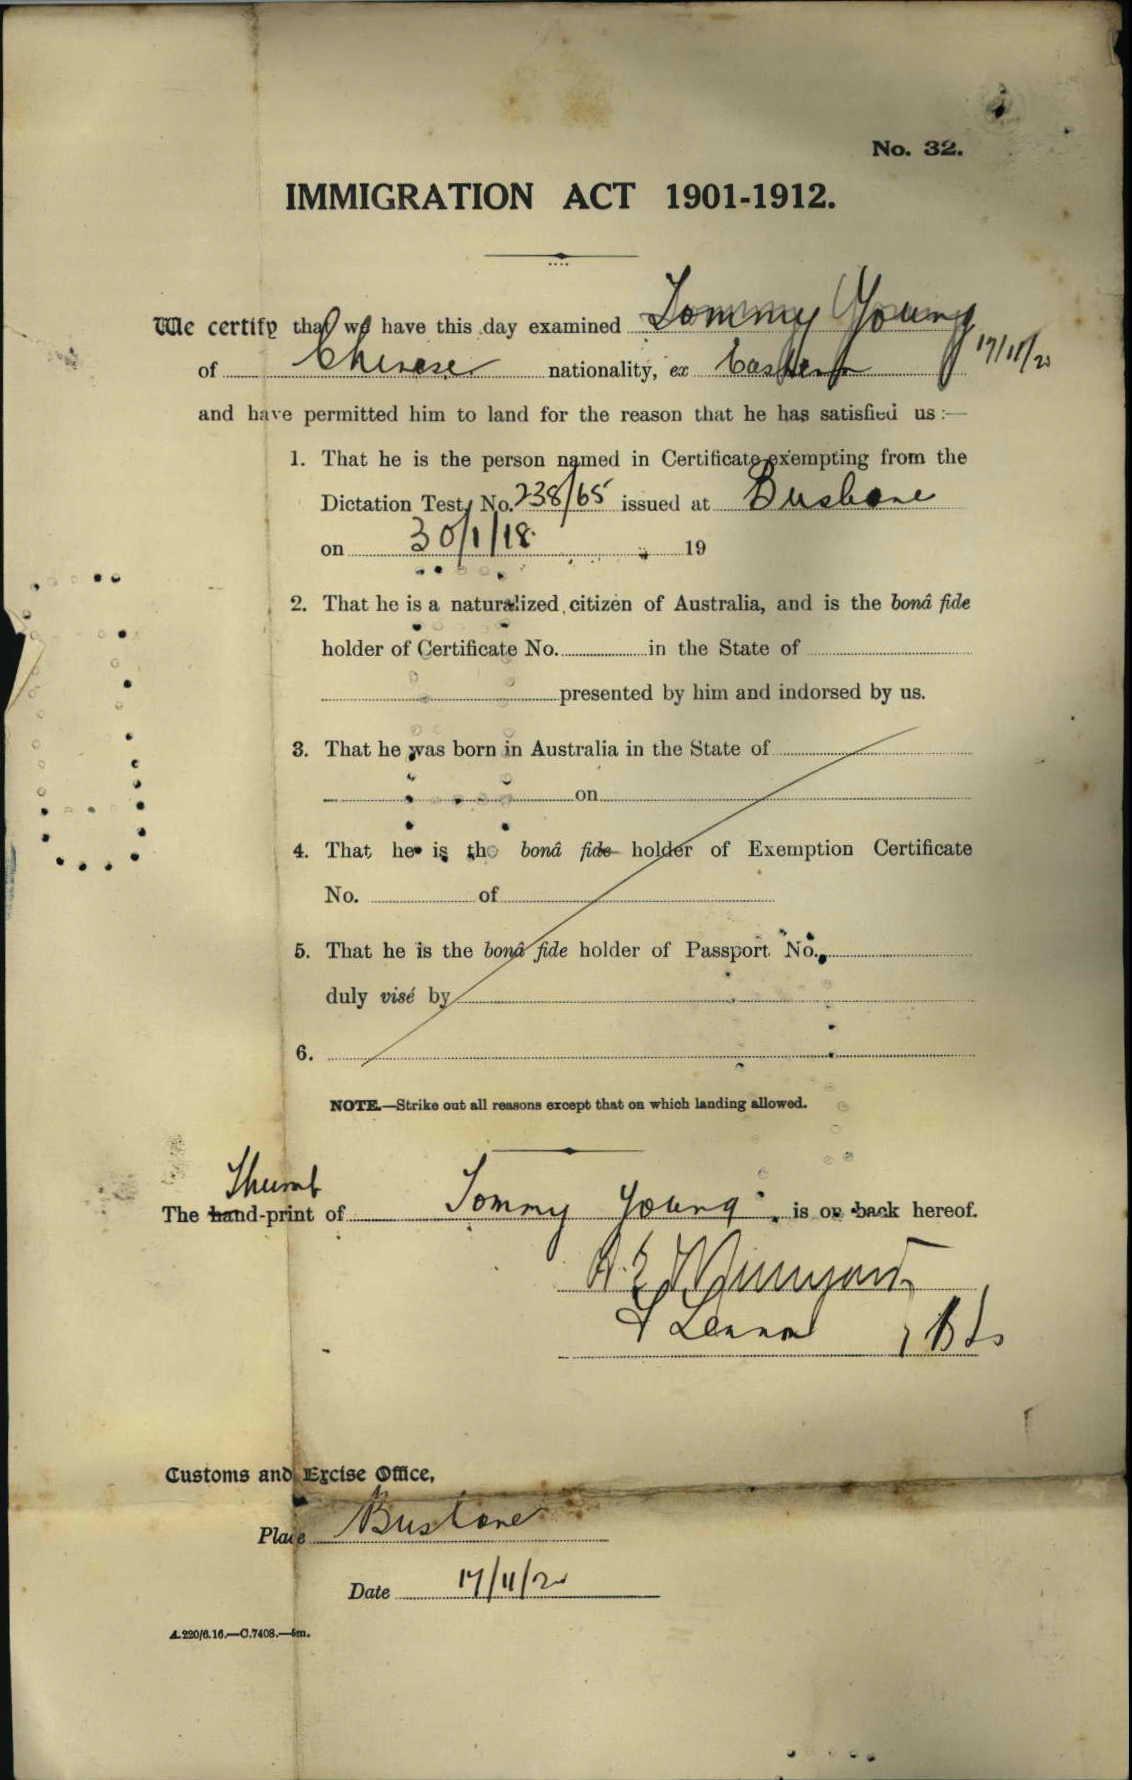 No. 32.
IMMIGRATION ACT 1901-1912.
We certify that we have this day examined Tommy Young
of Chinese nationality, ex Eastern 17/11/20
and have permitted him to land for the reason that he has satisfied us :—
1. That he is the person named in Certificate exempting from the
Dictation Test, No. 238/65 issued at Brisbane
on 30/1/18 19
2. That he is a naturalized citizen of Australia, and is the bonâ fide
holder of Certificate No. in the State of
presented by him and indorsed by us.
3. That he was born in Australia in the State of
on
4. That he is the bonâ fide holder of Exemption Certificate
No. of
5. That he is the bonâ fide holder of Passport No.
duly visé by
6.
NOTE.—Strike out all reasons except that on which landing allowed.
Thumb
The hand-print of Tommy Young is on back hereof.
Lennon
Customs and Excise Office,
Place Brisbane
Date 17/11/20
A.220/6.16.—C.7408.—5m.